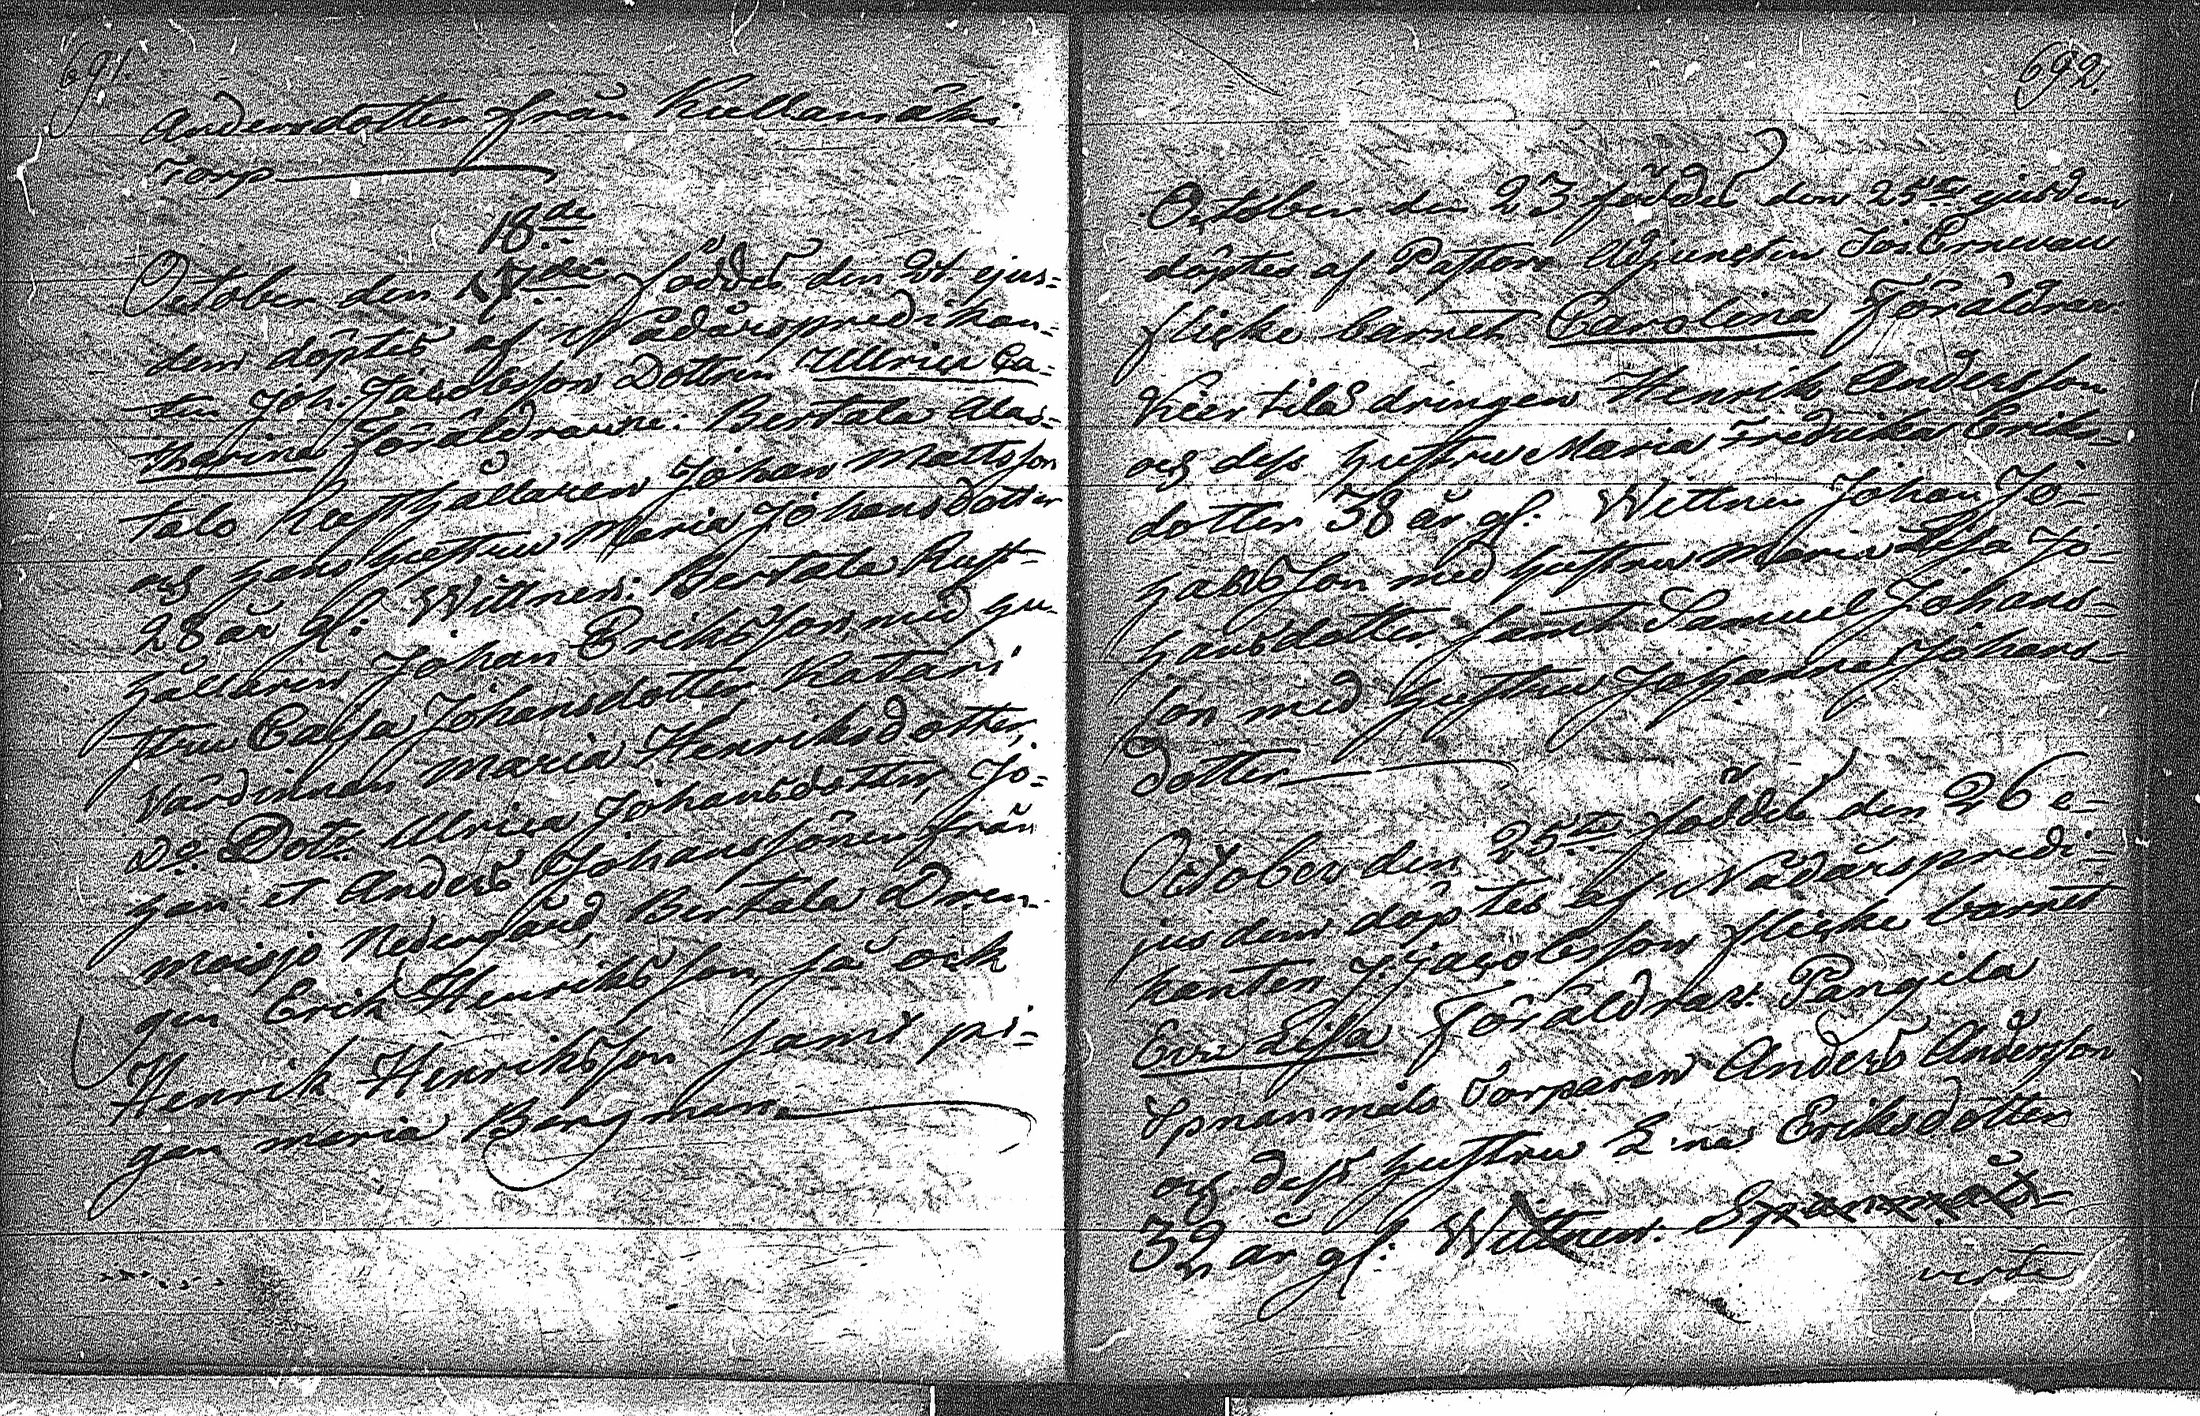 691.
Andersdotter från Kullamäki
Torp
18de
October den 17de föddes den 21 ejus-
dem döptes af Nådårspredikan-
ten Joh. Jacobsson Dottren Ullrica Ca-
tharina Föräldrarne: Bertala Alas-
talo Rusthållaren Johan Mattsson
och hans hustru Maria Johansdotter
28 år gl: Wittnen: Bertala Rust-
hållaren Johan Eriksson med hu-
stru Cajsa Johansdotter Katari
Värdinnan Maria Henriksdotter,
do Dotr Ulrica Johansdotter, Jo-
han et Anders Johanssöner från
moisjo Nedergård, Bertala Dren-
gen Erik Henriksson så ock
Henrik Henriksson samt pi-
gan maria Bergman
692.
October den 23 föddes den 25te ejusdem
döptes af Pastors Adjuncten Jos. Ernevan
flicke barnet Carolina Föräldrar
Henrik Andersson
och dess hustru Maria Fredrika Eriks-
dotter 38 år gl: Wittnen Johan Jo-
hansson med hustru Maria Lisa Jo-
hansdotter samt Samuel Johans-
son med hustru Johanna Johans-
dotter
October den 25te föddes den 26 e-
jusdem döptes af Nådårspredi-
kanten J. Jacobsson flicke barnet
Eva Lisa Föräldrar: Pangila
Torparen Anders Andersson
och dess hustru Lena Eriksdotter
32 år gl: Wittnen.
verte